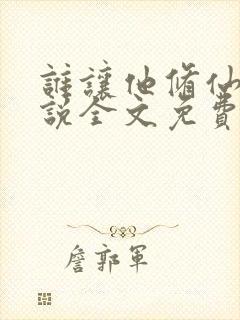 誰讓他脩仙
說全文免費
詹郭軍